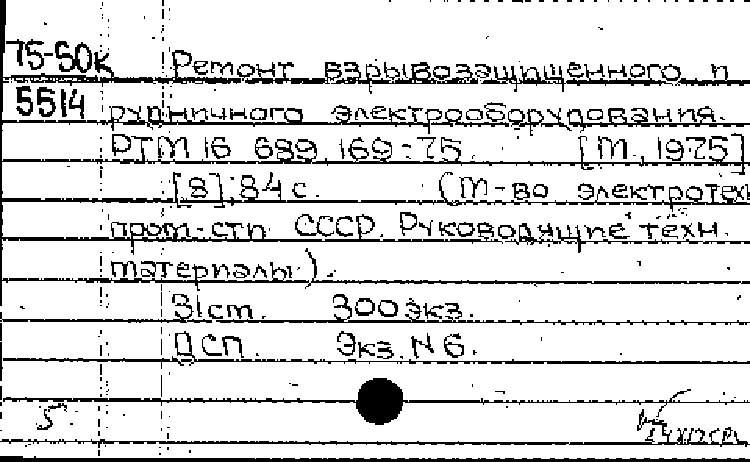 75-50к Ремонт взрывозащищенного и
5514 рудничного электрооборудования.
РТМ 16 689.169-75. [М., 1975]
[8], 84 с. (М-во электротехн
пром-сти СССР. Руководящие техн.
материалы).
31ст. 300 экз.
ДСП. Экз. N 6.
5